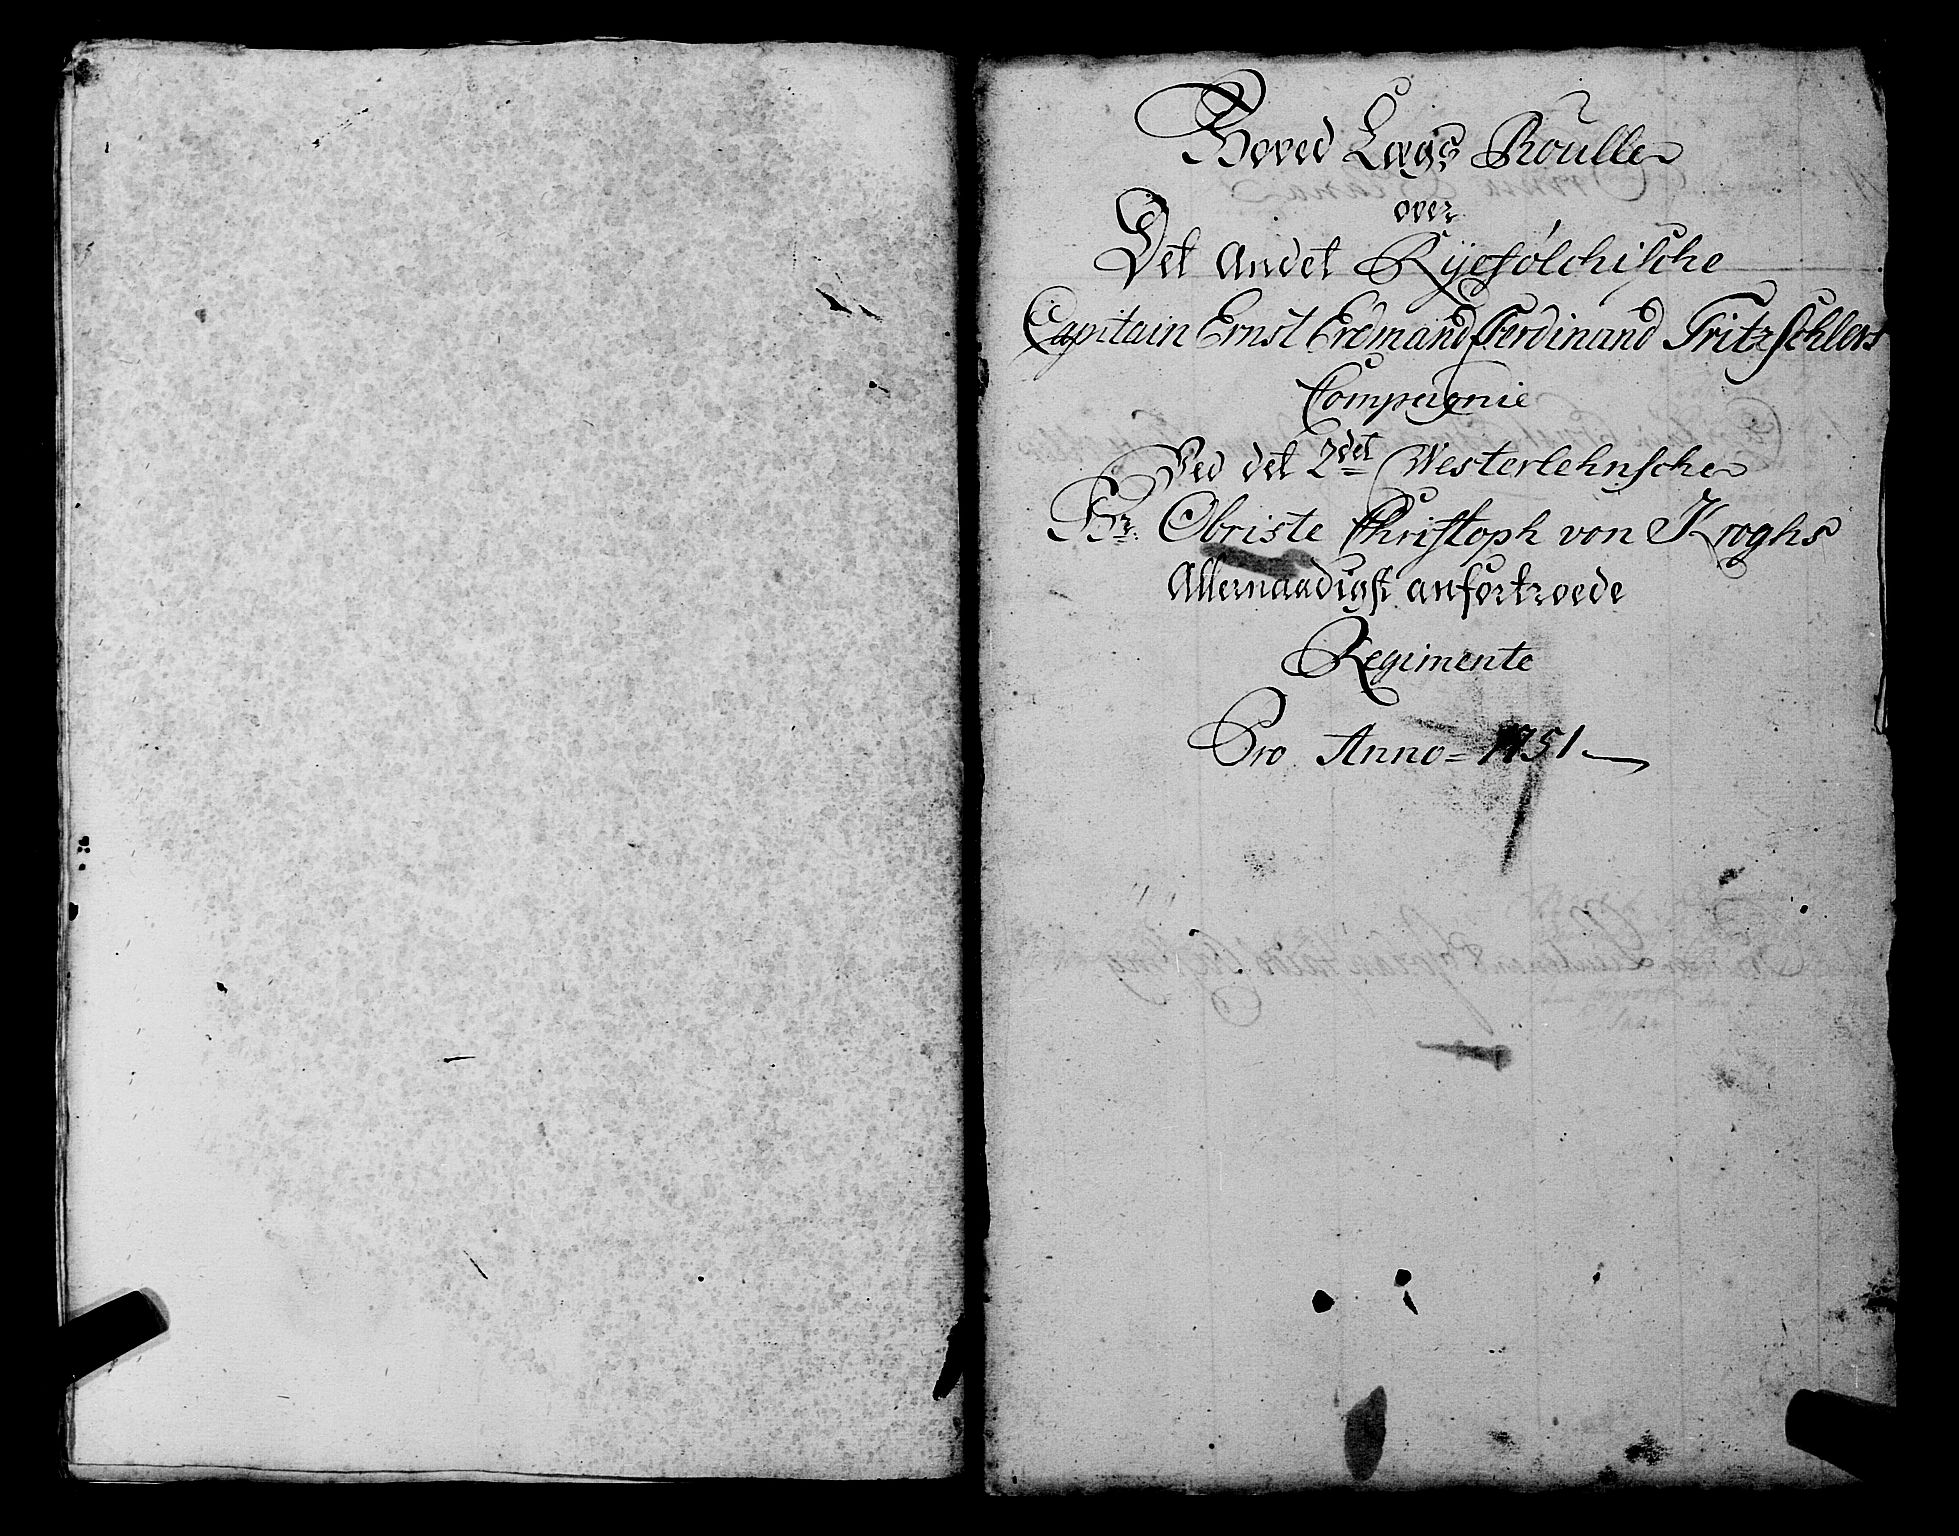 Hoved Lægs Roulle
over
Det andet Ryefolchische
Capitain Ernst Erdmand Ferdinand Fritzschlers
Compagnie
Ved det 2det Westerlehnsche
Hr. Obriste Christoph von Kroghs
Allernaadigst anfortroede
Regimente
Pro Anno = 1751